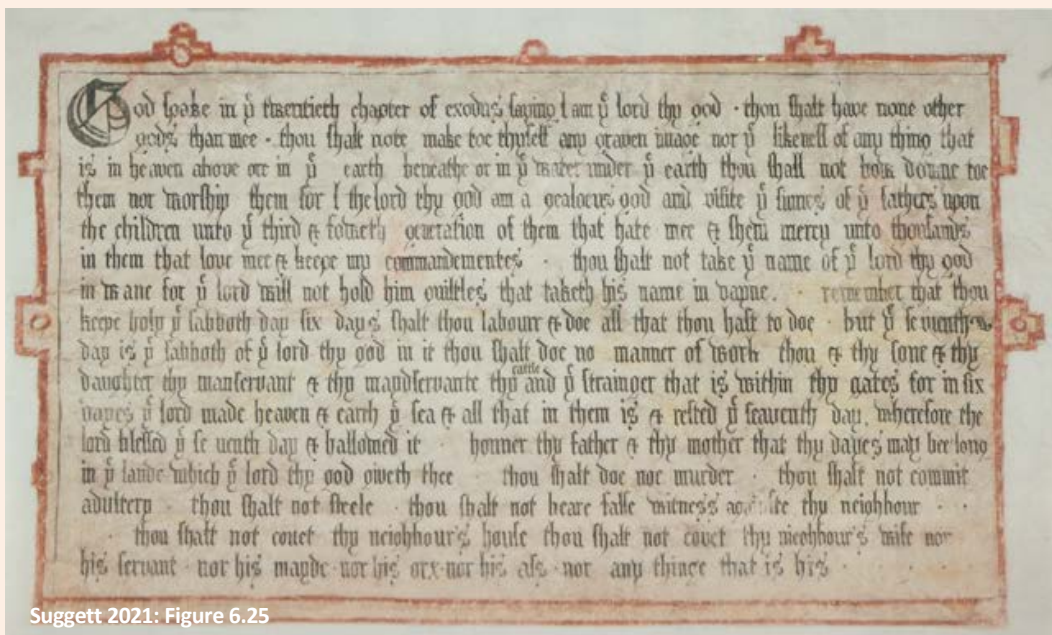 God spake in yͤ twentieth chapter of exodus saying I am yͤ lord thy god · thou shalt have none other
gods than mee · thou shalt note make toe thyself any graven image nor yͤ likeness of any thing that
is in heaven above orr in yͤ earth beneathe or in yͤ water under yͤ earth thou shall not bow downe toe
them nor worship them for I the lord thy god am a gealocus god and visite yͤ sinnes of yͤ fathers upon
the children unto yͤ third & fourth generation of them that hate mee & shew mercy unto thousands
in them that love mee & keepe my commandementes · thou shalt not take yͤ name of yͤ lord thy god
in vane for yͤ lord will not hold him guiltles that taketh his name in vayne · remember that thou
keepe holy yͤ sabboth day six days shalt thou labourr & doe all that thou hast to doe · but yͤ seventh
day is yͤ sabboth of yͤ lord thy god in it thou shalt doe no manner of work thou & thy sone & thy
daughter thy manservant & thy maydservante thy cattle and yͤ strainger that is within thy gates for in six
dayes yͤ lord made heaven & earth yͤ sea & all that in them is & rested yͤ seaventh day. wherefore the
lord blessed yͤ seventh day & hallowed it honner thy father & thy mother that thy dayes may bee long
in yͤ lande which yͤ lord thy god giveth thee · thou shalt doe noe murder · thou shalt not commit
adultery · thou shalt not steele · thou shalt not beare false witness thy neighbour · ·
thou shalt not covet thy neighbour's house thou shalt not covet thy nieghbour's wife nor
his servant · nor his mayde · nor his oxx · nor his ass · nor any thinge that is his ·
Suggett 2021: Figure 6.25